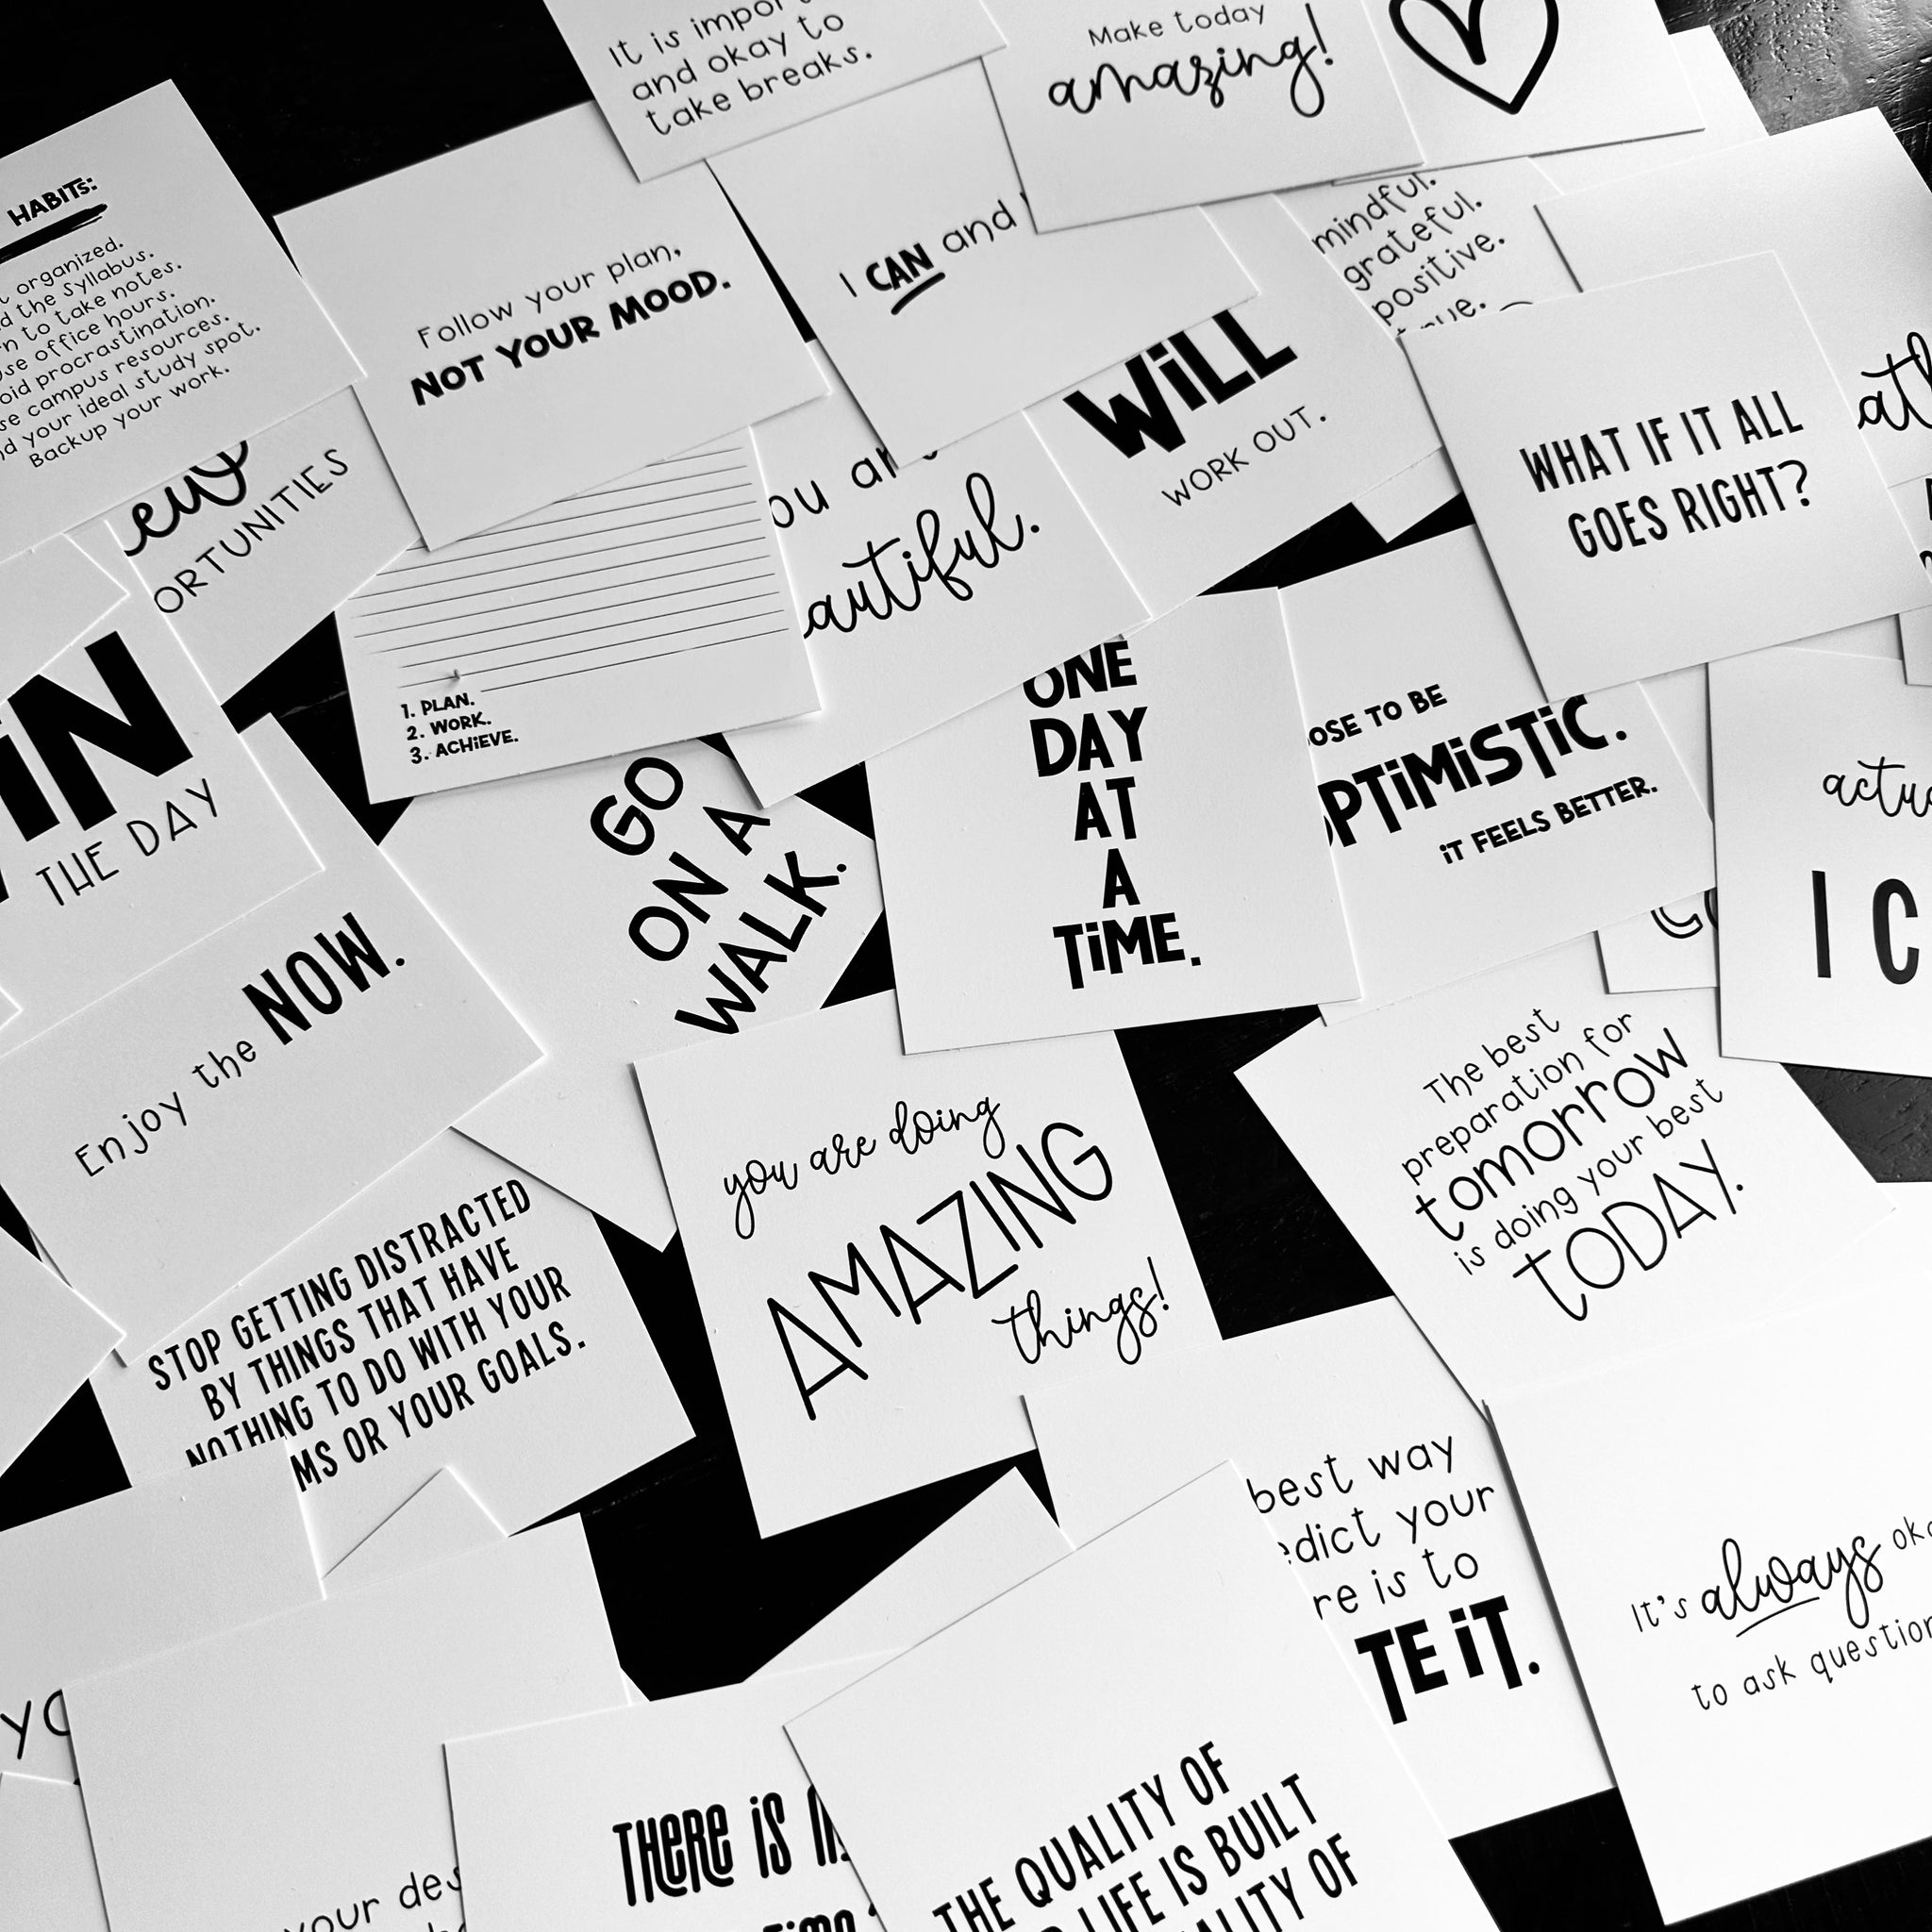 It is
and okay to
take breaks.
Make today
amazing!
HABITS:
organized.
the Syllabus.
to take notes.
office hours.
procrastination.
campus resources.
your ideal study spot.
Backup your work.
Follow your plan,
NOT YOUR MOOD.
I CAN and
mindful.
grateful.
positive.
WILL
WORK OUT.
WHAT IF IT ALL
GOES RIGHT?
1. PLAN.
2. WORK.
3. ACHIEVE.
THE DAY
GO
ON A
WALK.
ONE
DAY
AT
A
TIME.
TO BE
OPTIMISTIC.
IT FEELS BETTER.
I
Enjoy the NOW.
you are doing
AMAZING
things!
The best
preparation for
tomorrow
is doing your best
TODAY.
STOP GETTING DISTRACTED
BY THINGS THAT HAVE
NOTHING TO DO WITH YOUR
MS OR YOUR GOALS.
best way
your
is to
TE IT.
It's always
to ask
your
THERE IS
THE QUALITY OF
LIFE IS BUILT
OF